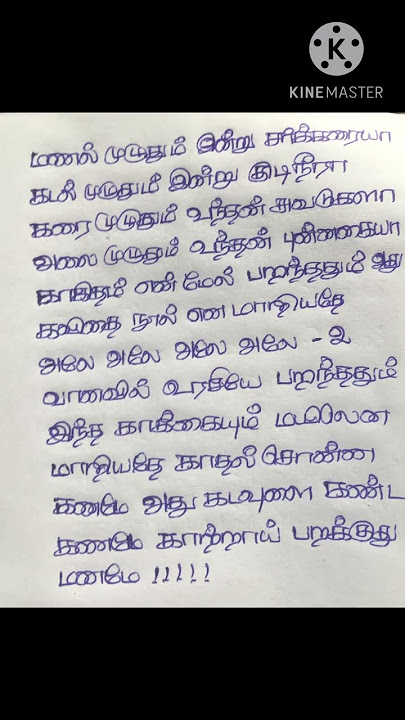 K
KINEMASTER
மணல் முழுதும் இன்று சர்க்கரையா
கடல் முழுதும் இன்று குடிநீரா
கரை முழுதும் உந்தன் சுவடுகளா
அலை முழுதும் உந்தன் புன்னகையா
காகிதம் என் மேல் பறந்ததும் அது
கவிதை நூல் என மாறியதே
அலே அலே அலே அலே - 2
வானவில் உரசியே பறந்ததும்
இந்த காக்கையும் மயிலென
மாறியதே காதல் சொன்ன
கணமே அது கடவுளை கண்ட
கணமே காற்றாய் பறக்குது
மனமே !!!!!